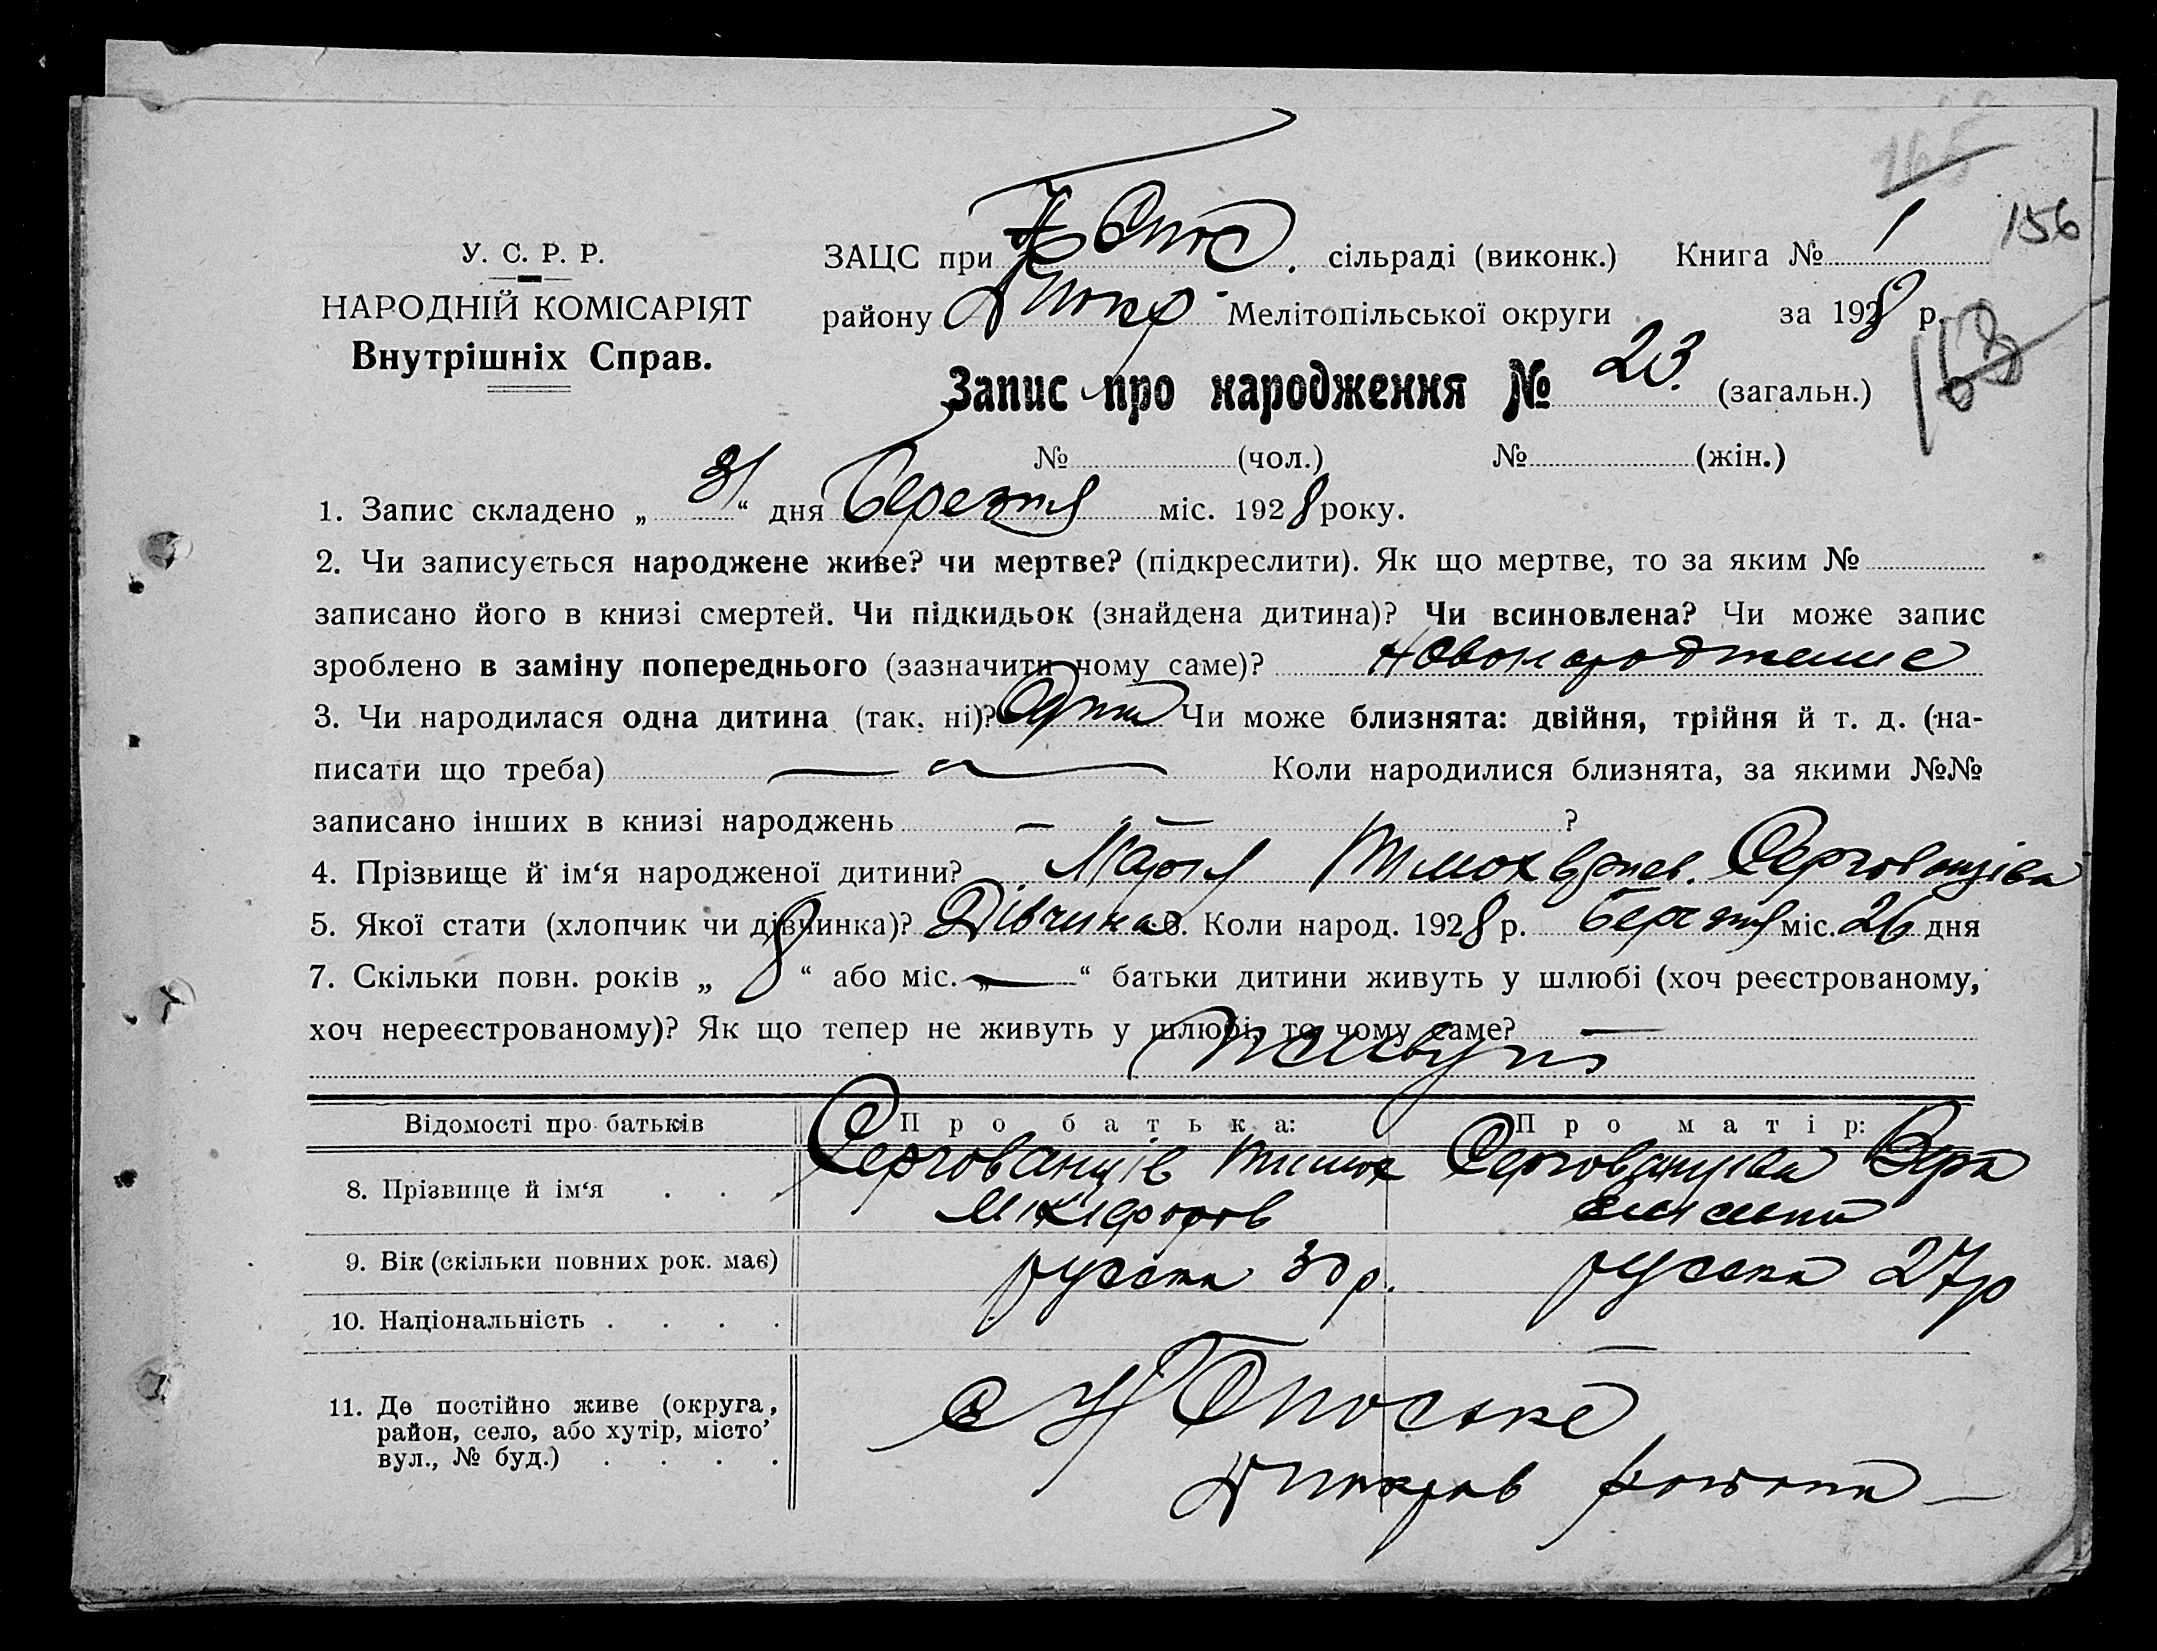 156
У. С. Р. Р.
НАРОДНІЙ КОМІСАРІЯТ
Внутрішніх Справ.
ЗАЦС при сільраді (виконк.) Книга № 1
району Мелітопільської округи за 1928 р.
168
Запис про народження № 23. (загальн.)
№ (чол.) № (жін.)
1. Запис складено „ 31 “ дня Березня міс. 1928 року.
2. Чи записується народжене живе? чи мертве? (підкреслити). Як що мертве, то за яким №
записано його в книзі смертей. Чи підкидьок (знайдена дитина)? Чи всиновлена? Чи може запис
зроблено в заміну попереднього (зазначити чому саме)?
3. Чи народилася одна дитина (так, ні)? Одна Чи може близнята: двійня, трійня й т. д. (на-
писати що треба) — Коли народилися близнята, за якими №№
записано інших в книзі народжень — — ?
4. Прізвище й ім‘я народженої дитини? Марія
5. Якої стати (хлопчик чи дівчинка)? Дівчина 6. Коли народ. 1928 р. Березня міс. 26 дня
7. Скільки повн. років „ 8 “ або міс. „ — “ батьки дитини живуть у шлюбі (хоч реєстрованому,
хоч нереєстрованому)? Як що тепер не живуть у шлюбі, то чому саме? —
Відомості про батьків Про батька: Про матір:
8. Прізвище й ім‘я . . . Сергованців Тимох Сергованцева Вера
9. Вік (скільки повних рок. має) 30 р. 27 р
10. Національність . . . .
11. Де постійно живе (округа,
район, село, або хутір, місто’
вул., № буд.) . . . .
района —